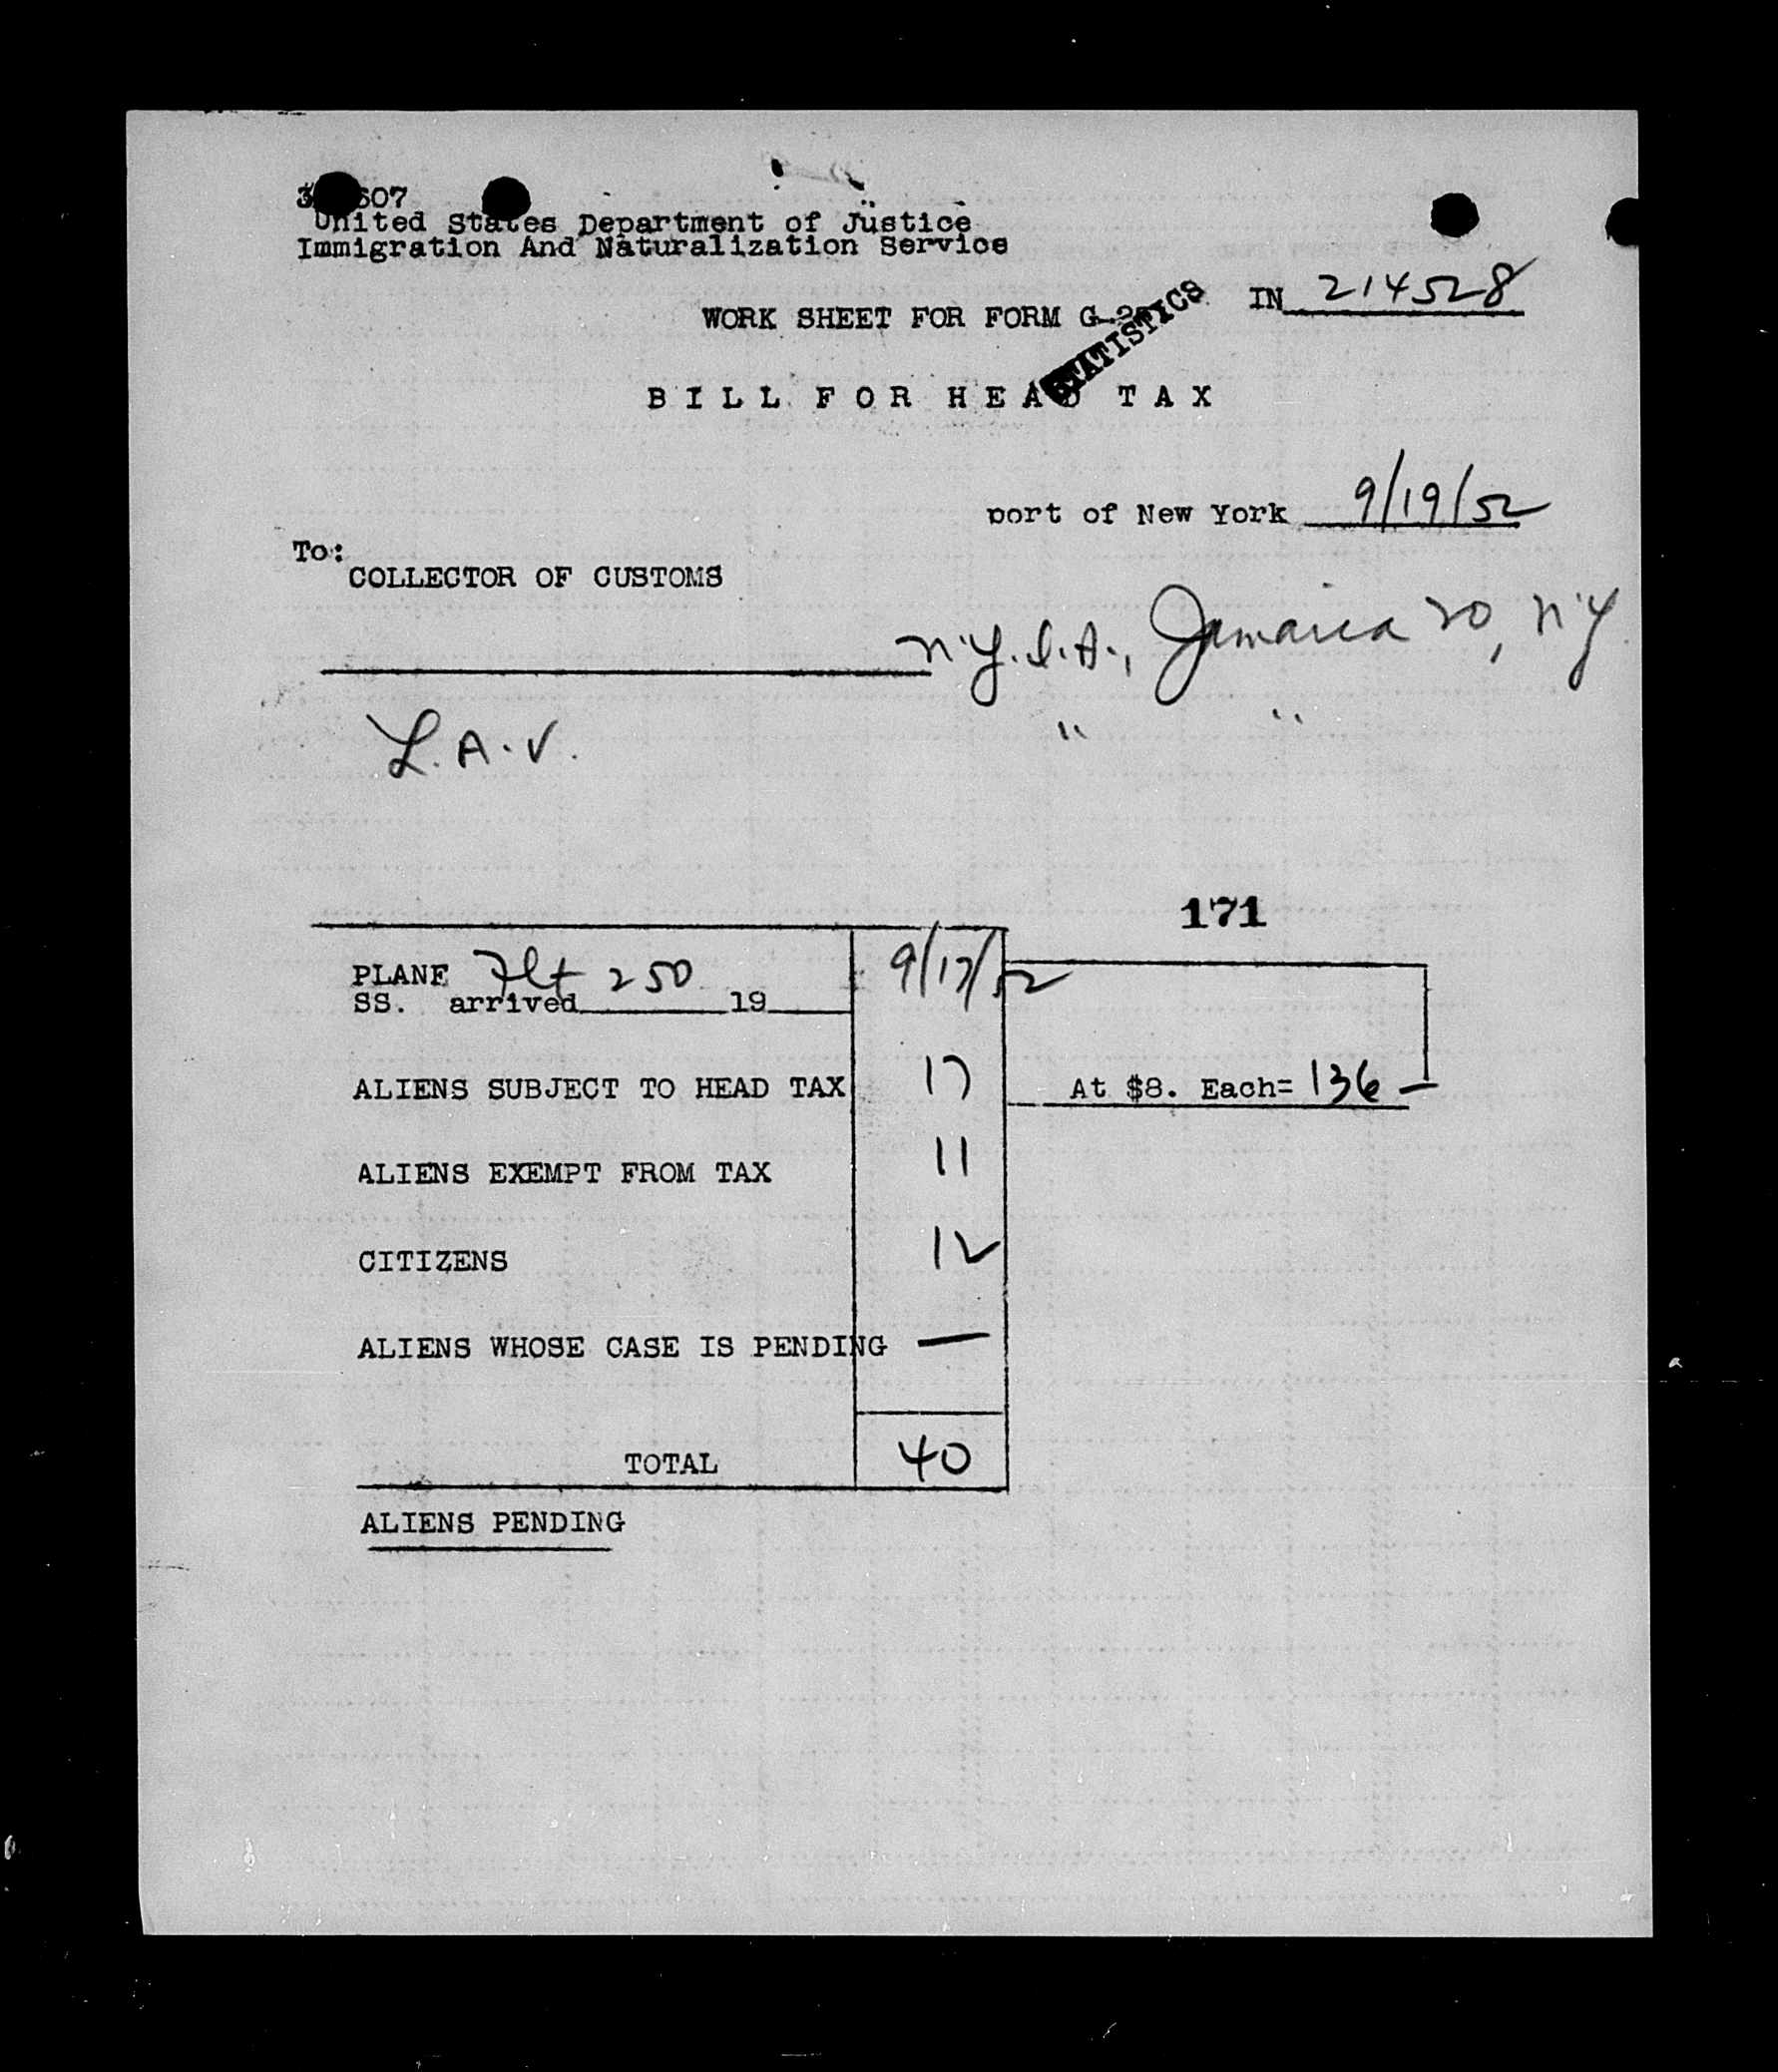 607
United States Department of Justice
Immigration And Naturalization Service
WORK SHEET FOR FORM IN 214528
STATISTICS
BILL FOR HEAD TAX
port of New York 9/19/52
To:
COLLECTOR OF CUSTOMS
N.Y.I.A., Jamaica 20, N.Y.
L.A.V. " "
171
PLANE Flt 250 9/17/52
SS. arrived 19
ALIENS SUBJECT TO HEAD TAX 17 At $8. Each= 136 —
ALIENS EXEMPT FROM TAX 11
CITIZENS 12
ALIENS WHOSE CASE IS PENDING —
TOTAL 40
ALIENS PENDING